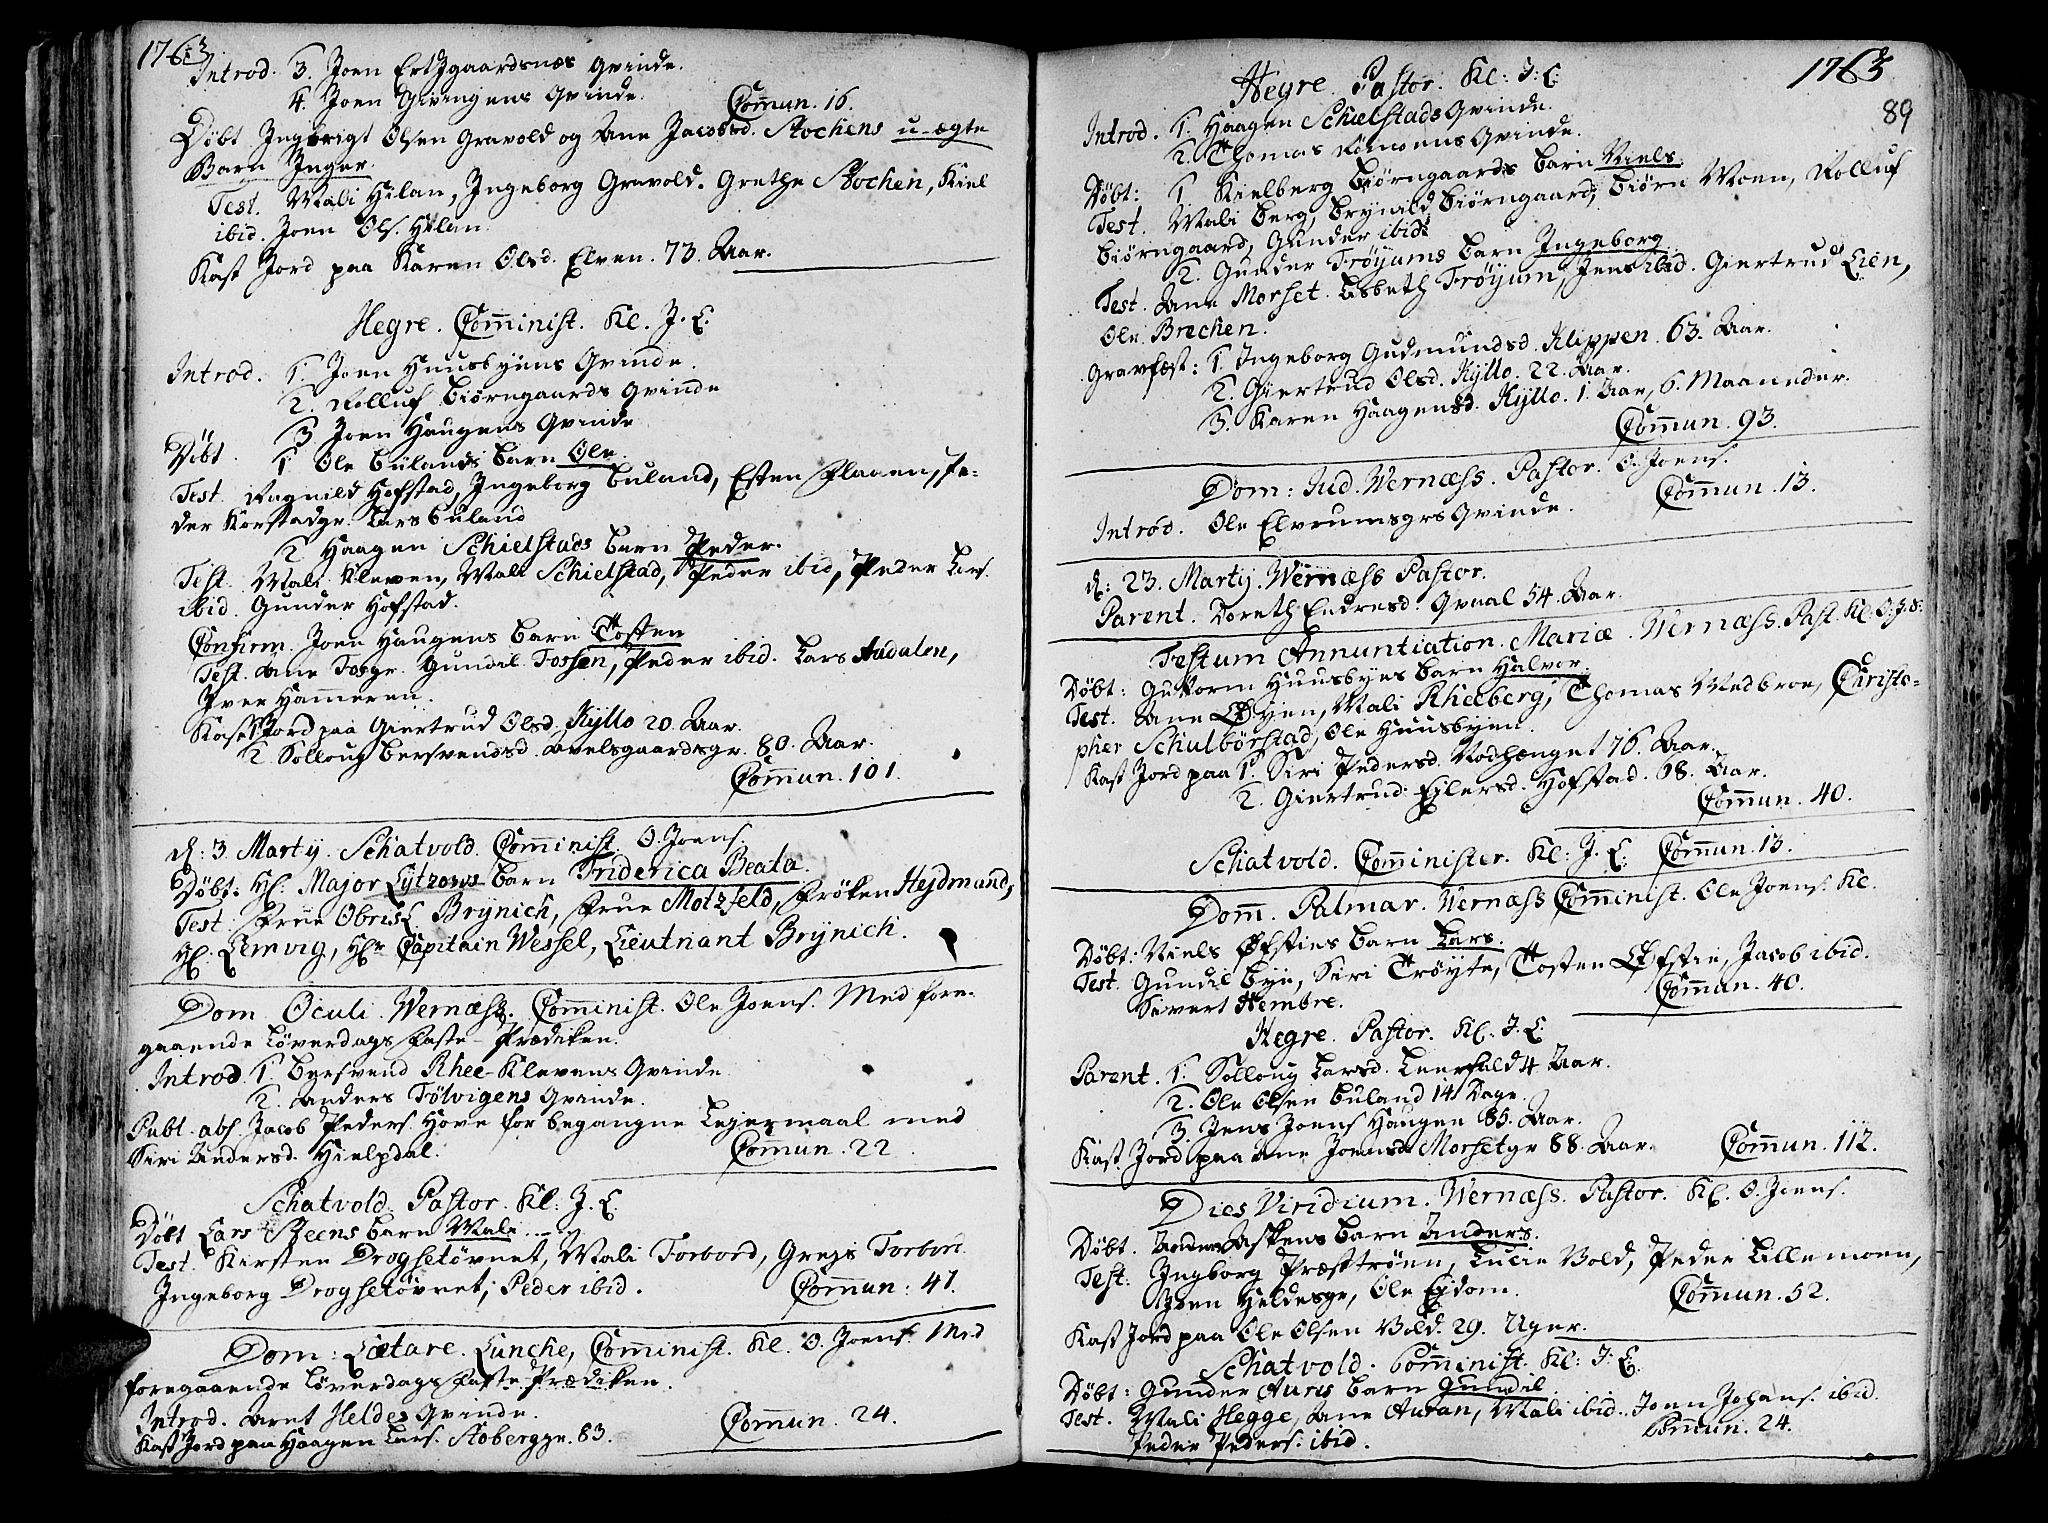 1763
Introd. 3. Joen Ertzgaardsnæs Qvinde.
4. Joen Givingens Qvinde. Com̄un. 16.
Döbt Ingebrigt Olsen Gravold og Ane Jacobsd. Stochens u-ægte
Barn Inger.
Test. Mali Hilan, Ingeborg Gravold. Grethe Stochen, Kiel
ibid. Joen Ols. Hilan.
Kast Jord paa Karen Olsd. Elven. 73. Aar.
Hegre. Com̄inist. Kl. J. L.
Introd. 1. Joen Huusbyens Qvinde.
2. Rolluf Biörngaards Qvinde
3 Joen Haugens Qvinde
Döbt. 1. Ole Bulands Barn Ole.
Test. Ragnild Hofstad, Ingeborg Buland, Esten Flaaen, Pe-
der Korstadgr. Lars Buland
2. Haagen Schielstads Barn Peder.
Test. Mali Klewen, Mali Schielstad, Peder ibid, Peder Lars.
ibid. Gunder Hofstad.
Confirm. Joen Haugens Barn Tosten
Test. Ane Fosgr. Gundil Fossen, Peder ibid. Lars Audalen,
Iver Ham̄eren.
Kast Jord paa Giertrud Olsd. Kyllo 20. Aar.
2. Solloug Bersvendsd. Avelsgaardsgr. 80. Aar.
Com̄un. 101.
d: 3. Martÿ. Schatvold. Com̄inist. O. Joens.
Döbt: Hl. Major Lytzows Barn Friderica Beata.
Test. Frue Obrist Brÿnich, Frue Motzfeld, Fröken Hejdmand,
Hl. Lemvig, Hr Capitain Wessel, Lieutnant Brÿnich.
Dom. Oculi. Wernæss. Com̄inist. Ole Joens. Med fore-
gaaende Löverdags Faste-Prædiken.
Introd. 1. Bersvend Rhee-Klevens Qvinde
2. Anders Tölvigens Qvinde.
Publ. abs. Jacob Peders. Hove for begangne Lejermaal med
Siri Andersd. Hielpdal. Com̄un. 22.
Schatvold. Pastor. Kl: J. L.
Döbt Lars Steens Barn Mali
Test. Kirsten Drogsetövnet, Mali Forbord, Grejs Forbord
Ingeborg Drogsetövnet, Peder ibid. Com̄un: 41.
Dom: Lætare. Lunche, Com̄inist. Kl. O. Joens. Med
foregaaende Löverdags Faste Prædiken.
Introd. Arnt Heldes Qvinde.
Kast Jord paa Haagen Lars. Stoberggr. 83. Com̄un. 24.
1763
89
Hegre. Pastor. Kl: J. L:
Introd. 1. Haagen Schielstads Qvinde.
2. Thomas Ramoens Qvinde.
Döbt: 1 Kielberg Biörngaards Barn Niels.
Test. Mali Berg, Brynild Biörngaard, Biörn Moen, Rolluf
Biörngaard, Gunder ibid.
2. Gunder Fröyums Barn Ingeborg
Test. Ane Morset. Lisbeth Fröyum, Jens ibid. Giertrud Lien,
Ole Brechen.
Gravfæst: 1. Ingeborg Gudmundsd. Klippen. 63. Aar.
2. Giertrud Olsd. Kyllo. 22. Aar.
3. Karen Haagensd. Kyllo. 1. Aar, 6. Maaneder.
Com̄un. 93.
Dom: Jud. Wernæss. Pastor. O. Joens.
Introd. Ole Elvrumsgrs Qvinde. Com̄un. 13.
d: 23. Martÿ. Wernæss Pastor.
Parent. Doreth Endresd. Qvaal 54. Aar.
Festum Annuntiation. Mariæ. Wernæss. Past. Kl. O. J.S:
Döbt: Guttorm Huusbyes Barn Halvor.
Test. Ane Öÿen, Mali Rheeberg, Thomas Medbroe, Christo-
pher Schulbörstad, Ole Huusbyen.
Kast Jord paa 1. Siri Pedersd. Rodhænget 76. Aar.
2. Giertrud Ejlersd. Hofstad. 68. Aar.
Com̄un. 40.
Schatvold. Com̄inister. Kl: J. L: Com̄un. 13.
Dom̄. Palmar. Wernæss Com̄inist. Ole Joens. Kl.
Döbt: Niels Öfsties Barn Lars.
Test. Gundil Bye, Siri Tröyte, Tosten Öfstie, Jacob ibid.
Sivert Hembre. Com̄un. 40.
Hegre. Pastor. Kl. J. L.
Parent. 1. Solloug Larsd. Leerfald 4 Aar.
2. Ole Olsen Buland 14 Dage.
3. Jens Joens Haugen 85. Aar.
Kast Jord paa Ane Joensd. Morsetgr 88. Aar. Com̄un. 112.
Dies Viridium. Wernæss. Pastor. Kl. O. Joens.
Döbt. Anders Aspens Barn Anders.
Test: Ingborg Præstmoen, Lucie Vold, Peder Lillemoen,
Joen Heldesgr, Ole Ejdom. Com̄un. 52.
Kast Jord paa Ole Olsen Vold. 29. Uger.
Schatvold. Com̄inist. Kl: J. L.
Döbt: Gunder Auris Barn Gundil.
Test. Mali Hegge, Ane Auran, Mali ibid. Joen Johans. ibid.
Peder Peders. ibid. Com̄un. 24.